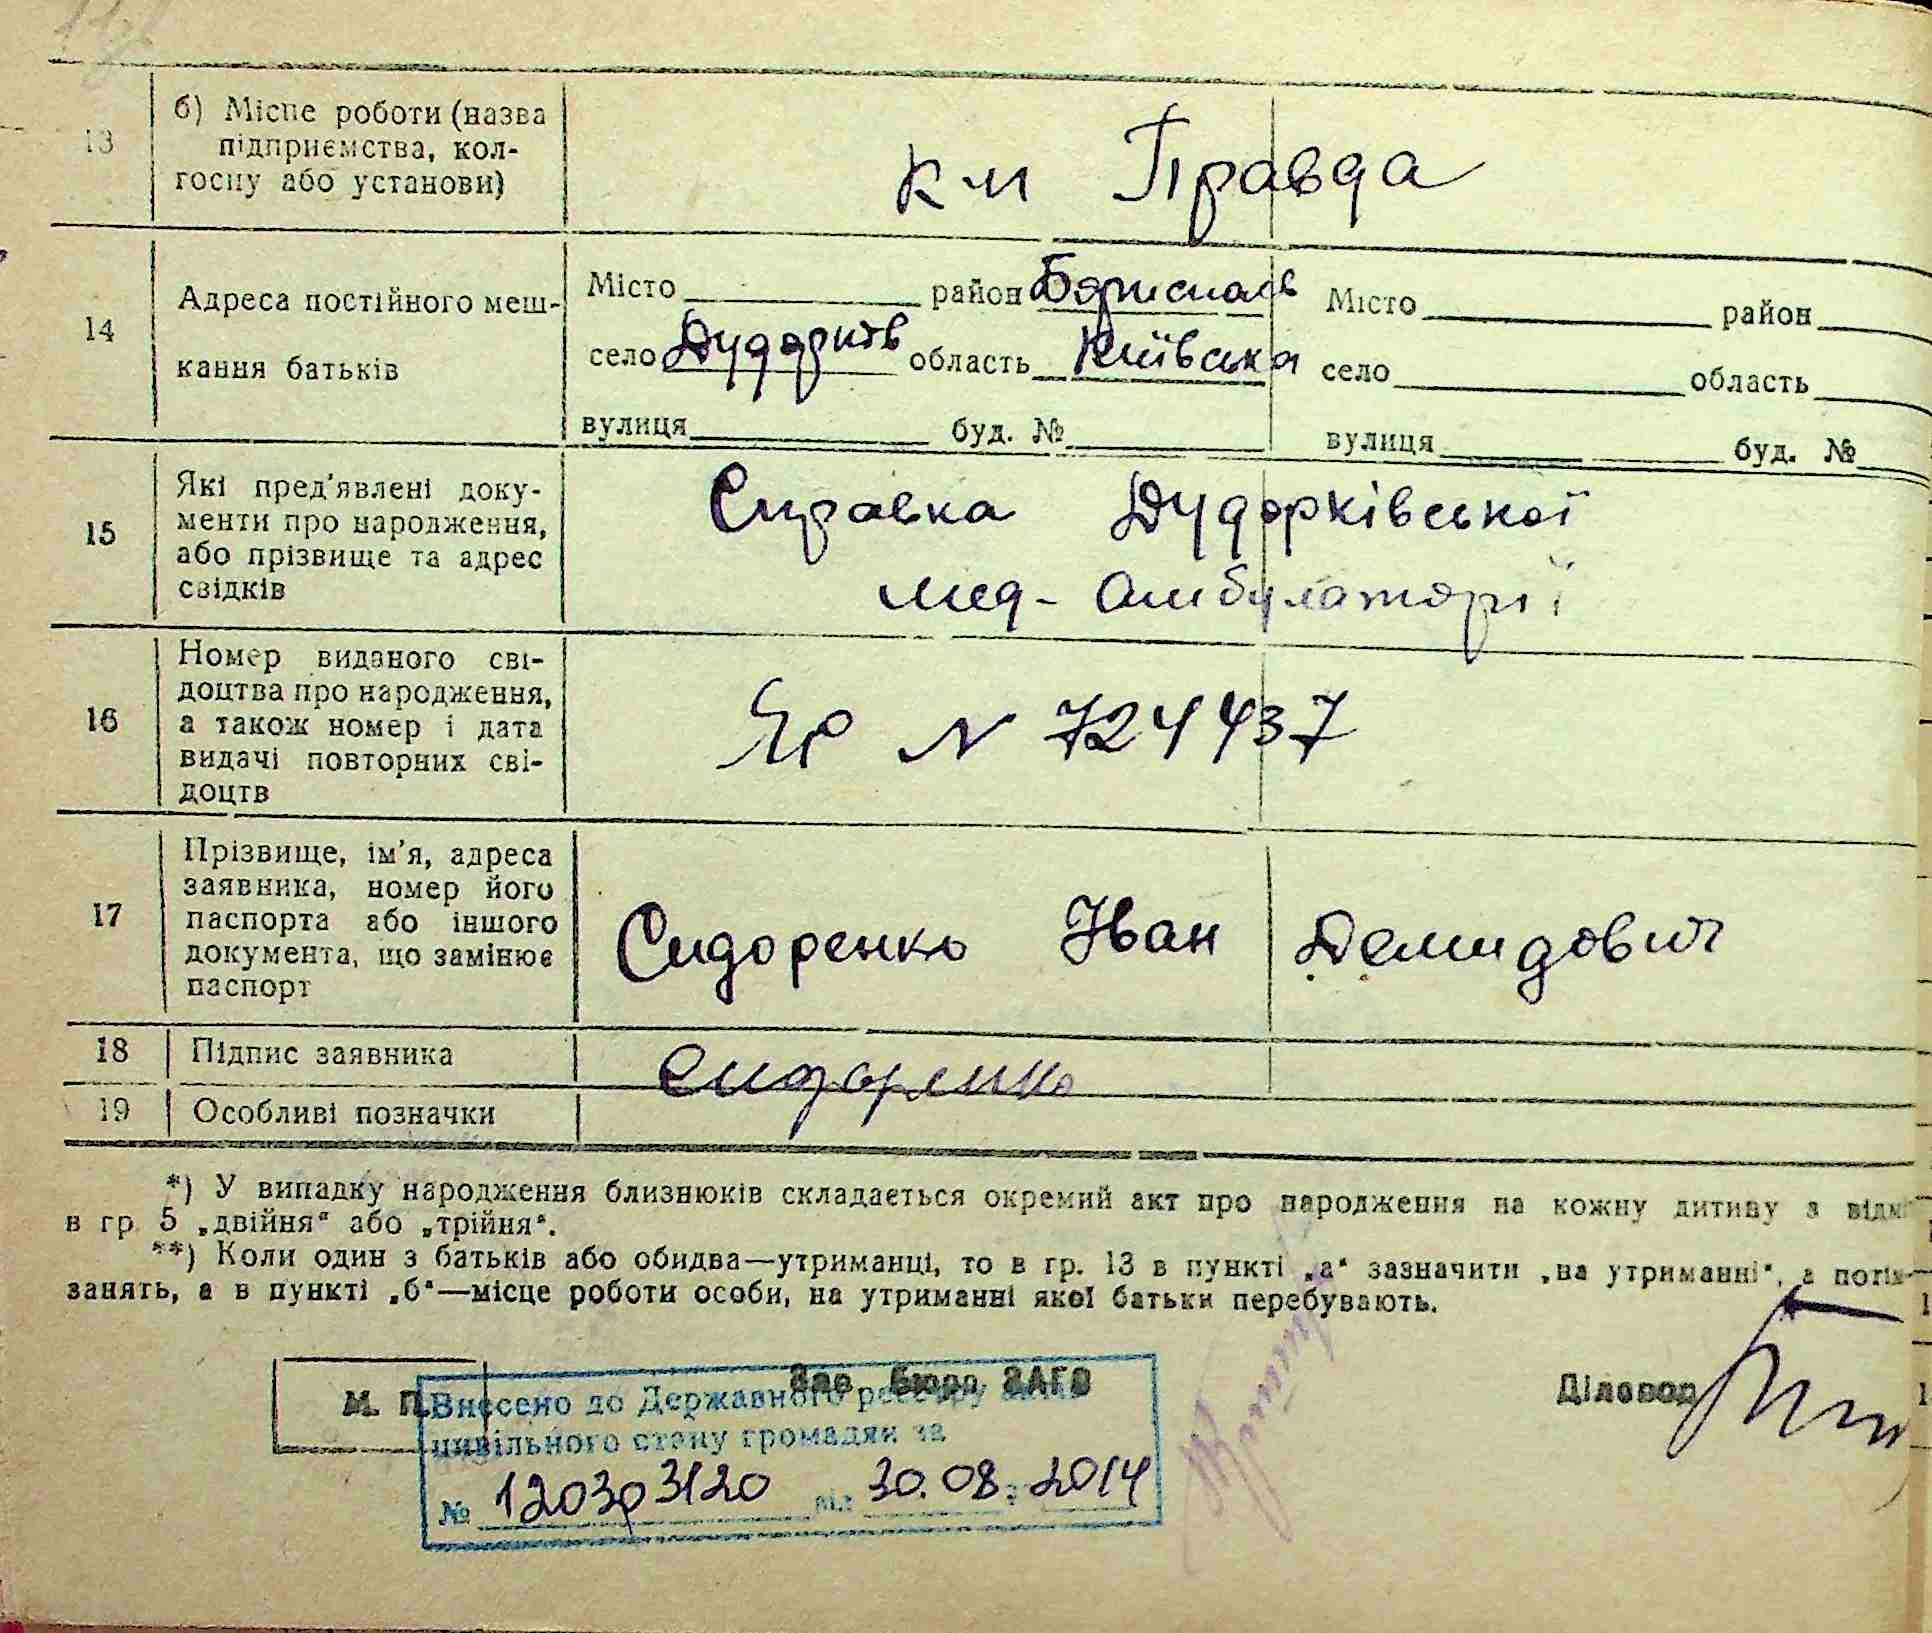 13
б) Місце роботи (назва
підприємства, кол-
госпу або установи)
к-п Правда
14
Адреса постійного меш-
кання батьків
Місто район Бориспіль
село Дударків область Київська
вулиця буд. №
Місто район
село область
вулиця буд. №
15
Які пред'явлені доку-
менти про народження,
або прізвище та адрес
свідків
Справка Дударківської
мед-амбулаторії
16
Номер виданого сві-
доцтва про народження,
а також номер і дата
видачі повторних сві-
доцтв
ЯР N 724437
17
Прізвище, ім'я, адреса
заявника, номер його
паспорта або іншого
документа, що замінює
паспорт
Сидоренко Іван Демидович
18
Підпис заявника
Сидоренко
19
Особливі позначки
*) У випадку народження близнюків складається окремий акт про народження на кожну дитину з
в гр. 5 „двійня“ або „трійня“.
**) Коли один з батьків або обидва—утриманці, то в гр. 13 в пункті „а“ зазначити „на утриманні“, а
занять, а в пункті „б“—місце роботи особи, на утриманні якої батьки перебувають.
М. П.
Зав. Бюро ЗАГС
Діловод
Внесено до Державного реєстру
цивільного стану громадян за
№ 120303120 від 30.08. 2014